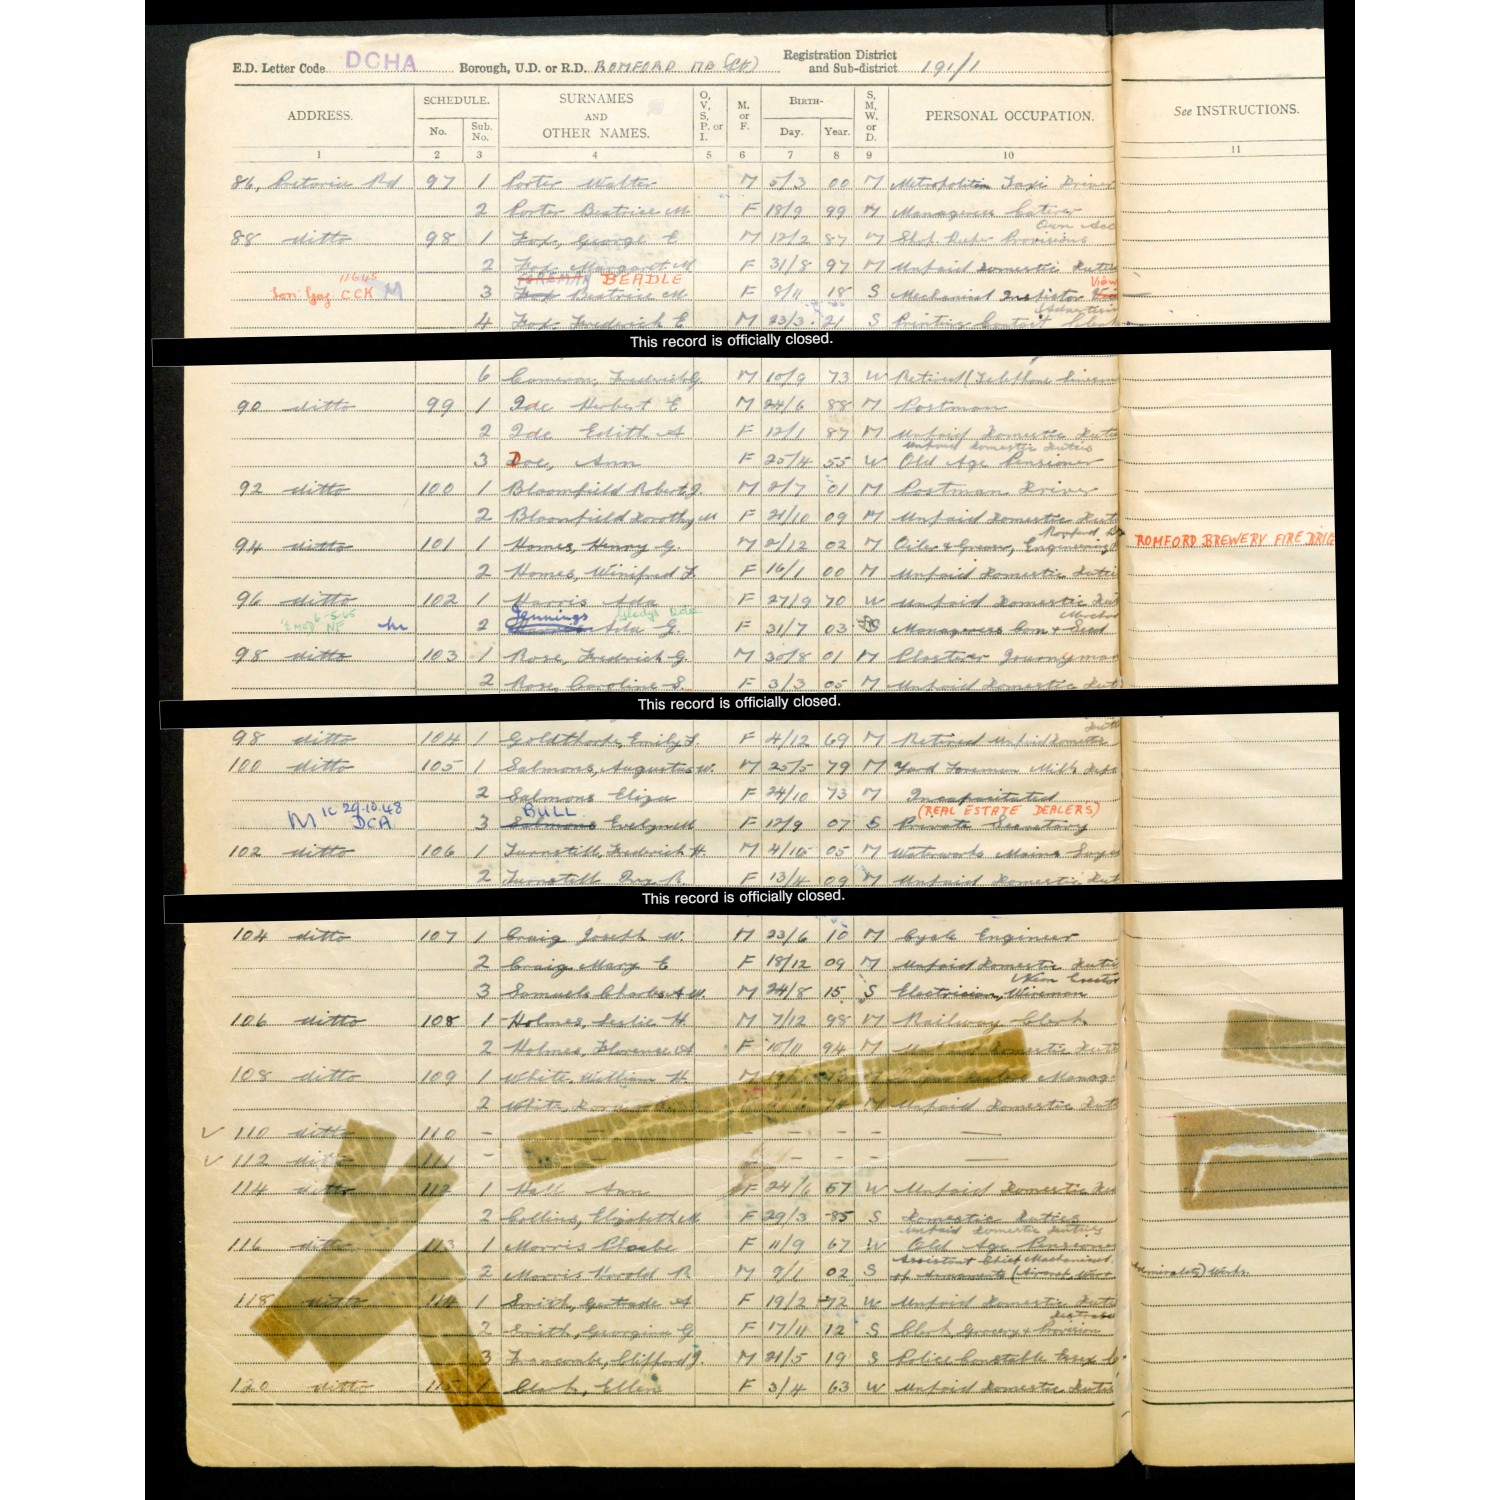 E.D. Letter Code DCHA Borough, U.D. or R.D. ROMFORD MB Registration District and Sub-district 191/1
ADDRESS. SCHEDULE. No. Sub. No. SURNAMES AND OTHER NAMES. O, V, S, P. or I. M. or F. BIRTH- Day. Year. S, M, W. or D. PERSONAL OCCUPATION. See INSTRUCTIONS.
1 2 3 4 5 6 7 8 9 10 11
86, Pretoria Rd 97 1 Porter Walter M 5/3 00 M Metropolitan Taxi Driver
2 Porter Beatrice M F 18/9 99 M Manageress Caterer
Own Acc
88 ditto 98 1 Fox, George E M 12/2 87 M Shop Keeper Provisions
2 Fox Margaret M F 31/8 97 M Unpaid Domestic Duties
11645 FOREMAN BEADLE View
CCK M 3 Fox Beatrice M F 8/11 18 S Mechanical Inspector
4 Fox Frederick E M 23/3 21 S Printing Contact Clerk
This record is officially closed.
6 Cameron, Frederick G. M 10/9 73 W Retired (Telephone Linesman
90 ditto 99 1 Ide Herbert E M 24/6 88 M Postman
2 Ide Edith A F 12/1 87 M Unpaid Domestic Duties
Unpaid Domestic Duties
3 Doe, Ann F 25/4 55 W Old Age Pensioner
92 ditto 100 1 Bloomfield Robert J. M 2/7 01 M Postman Driver
2 Bloomfield Dorothy M F 21/10 09 M Unpaid Domestic Duties
Romford
94 ditto 101 1 Homes, Henry G. M 2/12 02 M Oiler & Greaser, Engineering ROMFORD BREWERY FIRE BRIG
2 Homes, Winifred F. F 16/1 00 M Unpaid Domestic Duties
96 ditto 102 1 Harris Ada F 27/9 70 W Unpaid Domestic Dut
Jennings Gladys Ada
2 Ada G. F 31/7 03 Manageress Corn & Seed
98 ditto 103 1 Rose, Frederick G. M 30/8 01 M Plasterer Journeyman
2 Rose, Caroline S. F 3/3 05 M Unpaid Domestic Duties
This record is officially closed.
98 ditto 104 1 Goldthorpe, Emily F. F 4/12 69 M Retired Unpaid Domestic
100 ditto 105 1 Salmons, Augustus W. M 25/5 79 M Yard Foreman Milk Depo
2 Salmons Eliza F 24/10 73 M Incapacitated
M 1C 29.10.48 DCA BULL (REAL ESTATE DEALERS)
3 Salmons Evelyn M F 12/9 07 S Private Secretary
102 ditto 106 1 Turnstill, Frederick H. M 4/10 05 M Waterworks Mains Layer
2 Turnstill Ivy R. F 13/4 09 M Unpaid Domestic Dut
This record is officially closed.
104 ditto 107 1 Craig Joseph W. M 23/6 10 M Cycle Engineer
2 Craig Mary E F 18/12 09 M Unpaid Domestic Duties
3 Samuels Charles A W. M 24/8 15 S Electrician, Wireman
106 ditto 108 1 Holmes, Leslie H M 7/12 98 M Railway Clerk
2 Holmes, Florence A F 10/11 94 M Unpaid Domestic Duties
108 ditto 109 1 White. William H. M Manage
2 White, F M Unpaid Domestic Duties
110 ditto 110 - - - - -
112 ditto 111 - - - -
114 ditto 112 1 Hall Ann F 24/6 57 W Unpaid Domestic Du
2 Collins, Elizabeth M. F 29/3 85 S Domestic Duties
Unpaid Domestic Duties
116 ditto 113 1 Morris Phoebe F 11/9 67 W Old Age Pensioner
Assistant Chief Mechanical
2 Morris Harold R M 9/1 02 S of Armaments (Aircraft Admiralty) Works.
118 ditto 114 1 Smith, Gertrude A F 19/2 72 W Unpaid Domestic Duties
2 Smith, Georgina G F 17/11 12 S Clerk Grocery & Provision
3 Francombe, Clifford J. M 21/5 19 S Police Constable Essex
120 ditto 115 1 Clark, Ellen F 3/4 63 W Unpaid Domestic Duties